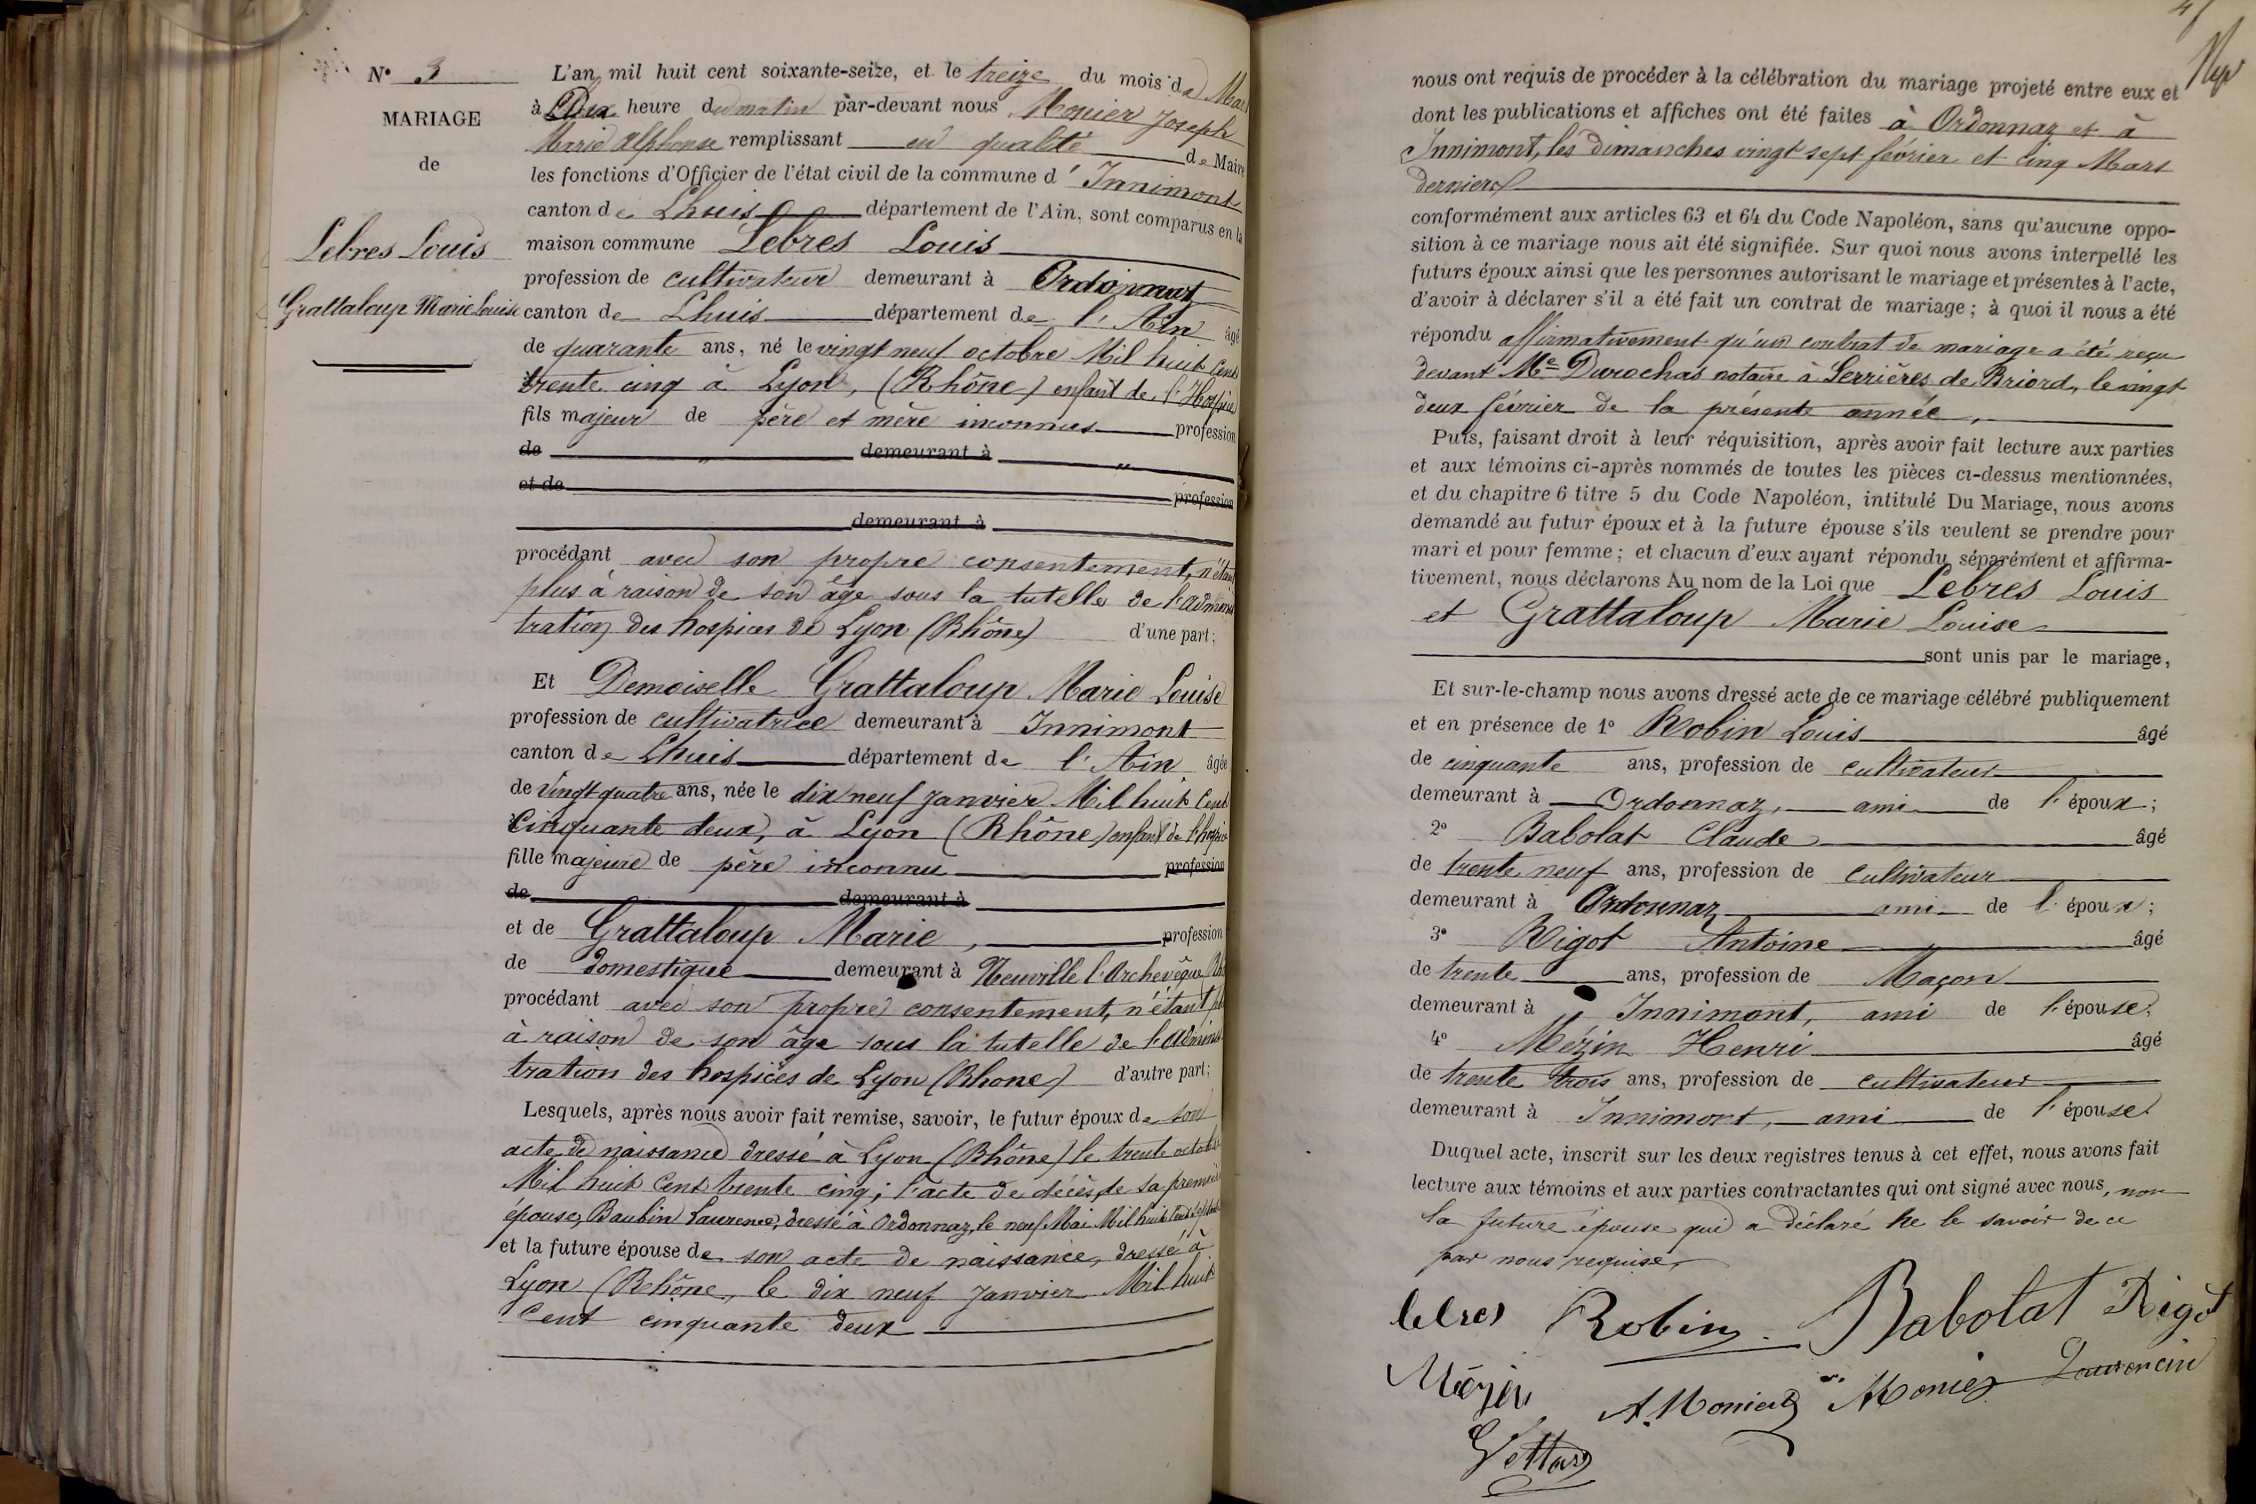 N° 3
MARIAGE
de
Lebres Louis
Grattaloup Marie Louise
L'an mil huit cent soixante-seize, et le treize du mois de Mars
à Dix heure du matin par-devant nous Monier Joseph
Marie Alphonse remplissant en qualité de Maire
les fonctions d'Officier de l'état civil de la commune d'Innimont
canton de Lhuis département de l'Ain, sont comparus en la
maison commune Lebres Louis
profession de cultivateur demeurant à Ordonnaz
canton de Lhuis département de l'Ain âgé
de quarante ans, né le vingt neuf octobre Mil huit Cent
trente cinq à Lyon, (Rhône) enfant de l'Hospice
fils majeur de père et mère inconnus profession
de " demeurant à "
et de profession
demeurant à
procédant avec son propre consentement, n'étant
plus à raison de son âge sous la tutelle de l'adminis
tration des hospices de Lyon (Rhône) d'une part;
Et Demoiselle Grattaloup Marie Louise
profession de cultivatrice demeurant à Innimont
canton de Lhuis département de l'Ain âgée
de vingt quatre ans, née le dix neuf Janvier Mil huit Cent
Cinquante deux, à Lyon (Rhône) enfant de l'hospice
fille majeure de père inconnu profession
de demeurant à
et de Grattaloup Marie, profession
de domestique demeurant à Neuville l'Archevêque Rh
procédant avec son propre consentement, n'étant pl
à raison de son âge sous la tutelle de l'adminis
tration des hospices de Lyon (Rhone) d'autre part;
Lesquels, après nous avoir fait remise, savoir, le futur époux de son
acte de naissance dressé à Lyon (Rhône) le trente octobre
Mil huit Cent trente cinq; l'acte de décès de sa première
épouse, Baubin Laurence, dressé à Ordonnaz, le neuf Mai Mil huit Cent
et la future épouse de son acte de naissance, dressé à
Lyon (Rhône, le dix neuf Janvier Mil huit
Cent cinquante deux
nous ont requis de procéder à la célébration du mariage projeté entre eux et
dont les publications et affiches ont été faites à Ordonnaz et à
Innimont, les dimanches vingt sept février et cinq Mars
derniers
conformément aux articles 63 et 64 du Code Napoléon, sans qu'aucune oppo-
sition à ce mariage nous ait été signifiée. Sur quoi nous avons interpellé les
futurs époux ainsi que les personnes autorisant le mariage et présentes à l'acte,
d'avoir à déclarer s'il a été fait un contrat de mariage; à quoi il nous a été
répondu affirmativement qu'un contrat de mariage a été reçu
devant Me Durochas notaire à Serrières de Briord, le vingt
deux février de la présente année,
Puis, faisant droit à leur réquisition, après avoir fait lecture aux parties
et aux témoins ci-après nommés de toutes les pièces ci-dessus mentionnées,
et du chapitre 6 titre 5 du Code Napoléon, intitulé Du Mariage, nous avons
demandé au futur époux et à la future épouse s'ils veulent se prendre pour
mari et pour femme; et chacun d'eux ayant répondu séparément et affirma-
tivement, nous déclarons Au nom de la Loi que Lebres Louis
et Grattaloup Marie Louise
sont unis par le mariage,
Et sur-le-champ nous avons dressé acte de ce mariage célébré publiquement
et en présence de 1° Robin Louis âgé
de cinquante ans, profession de cultivateur
demeurant à Ordonnaz, ami de l'époux;
2° Babolat Claude âgé
de trente neuf ans, profession de cultivateur
demeurant à Ordonnaz ami de l'époux;
3° Rigot Antoine âgé
de trente ans, profession de Maçon
demeurant à Innimont, ami de l'épouse;
4° Mézin Henri âgé
de trente trois ans, profession de cultivateur
demeurant à Innimont, ami de l'épouse.
Duquel acte, inscrit sur les deux registres tenus à cet effet, nous avons fait
lecture aux témoins et aux parties contractantes qui ont signé avec nous, non
la future épouse qui a déclaré ne le savoir de ce
par nous requise.
lebres Robin Babolat Rigot
Mézin A. Monier Monier Laurencin
Vettard